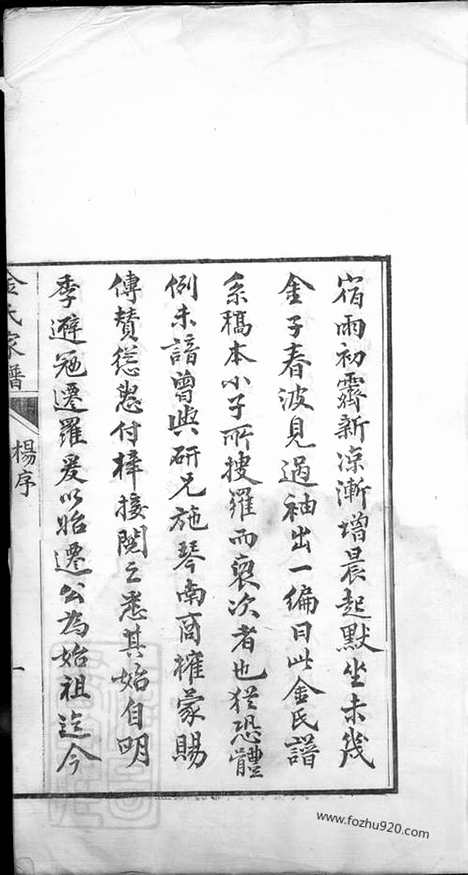 宿雨初霽新涼漸增晨起默坐未幾
金子春波見過袖出一編曰此金氏譜
系稿本小子所搜羅而裒次者也猶恐體
例未諳曾與研兄施琴南商榷蒙賜
傳贊慫恿付梓接閱之悉其始自明
季避寇遷羅爰以始遷公為始祖迄今
金氏家譜
楊序
一
www.fozhu920.com